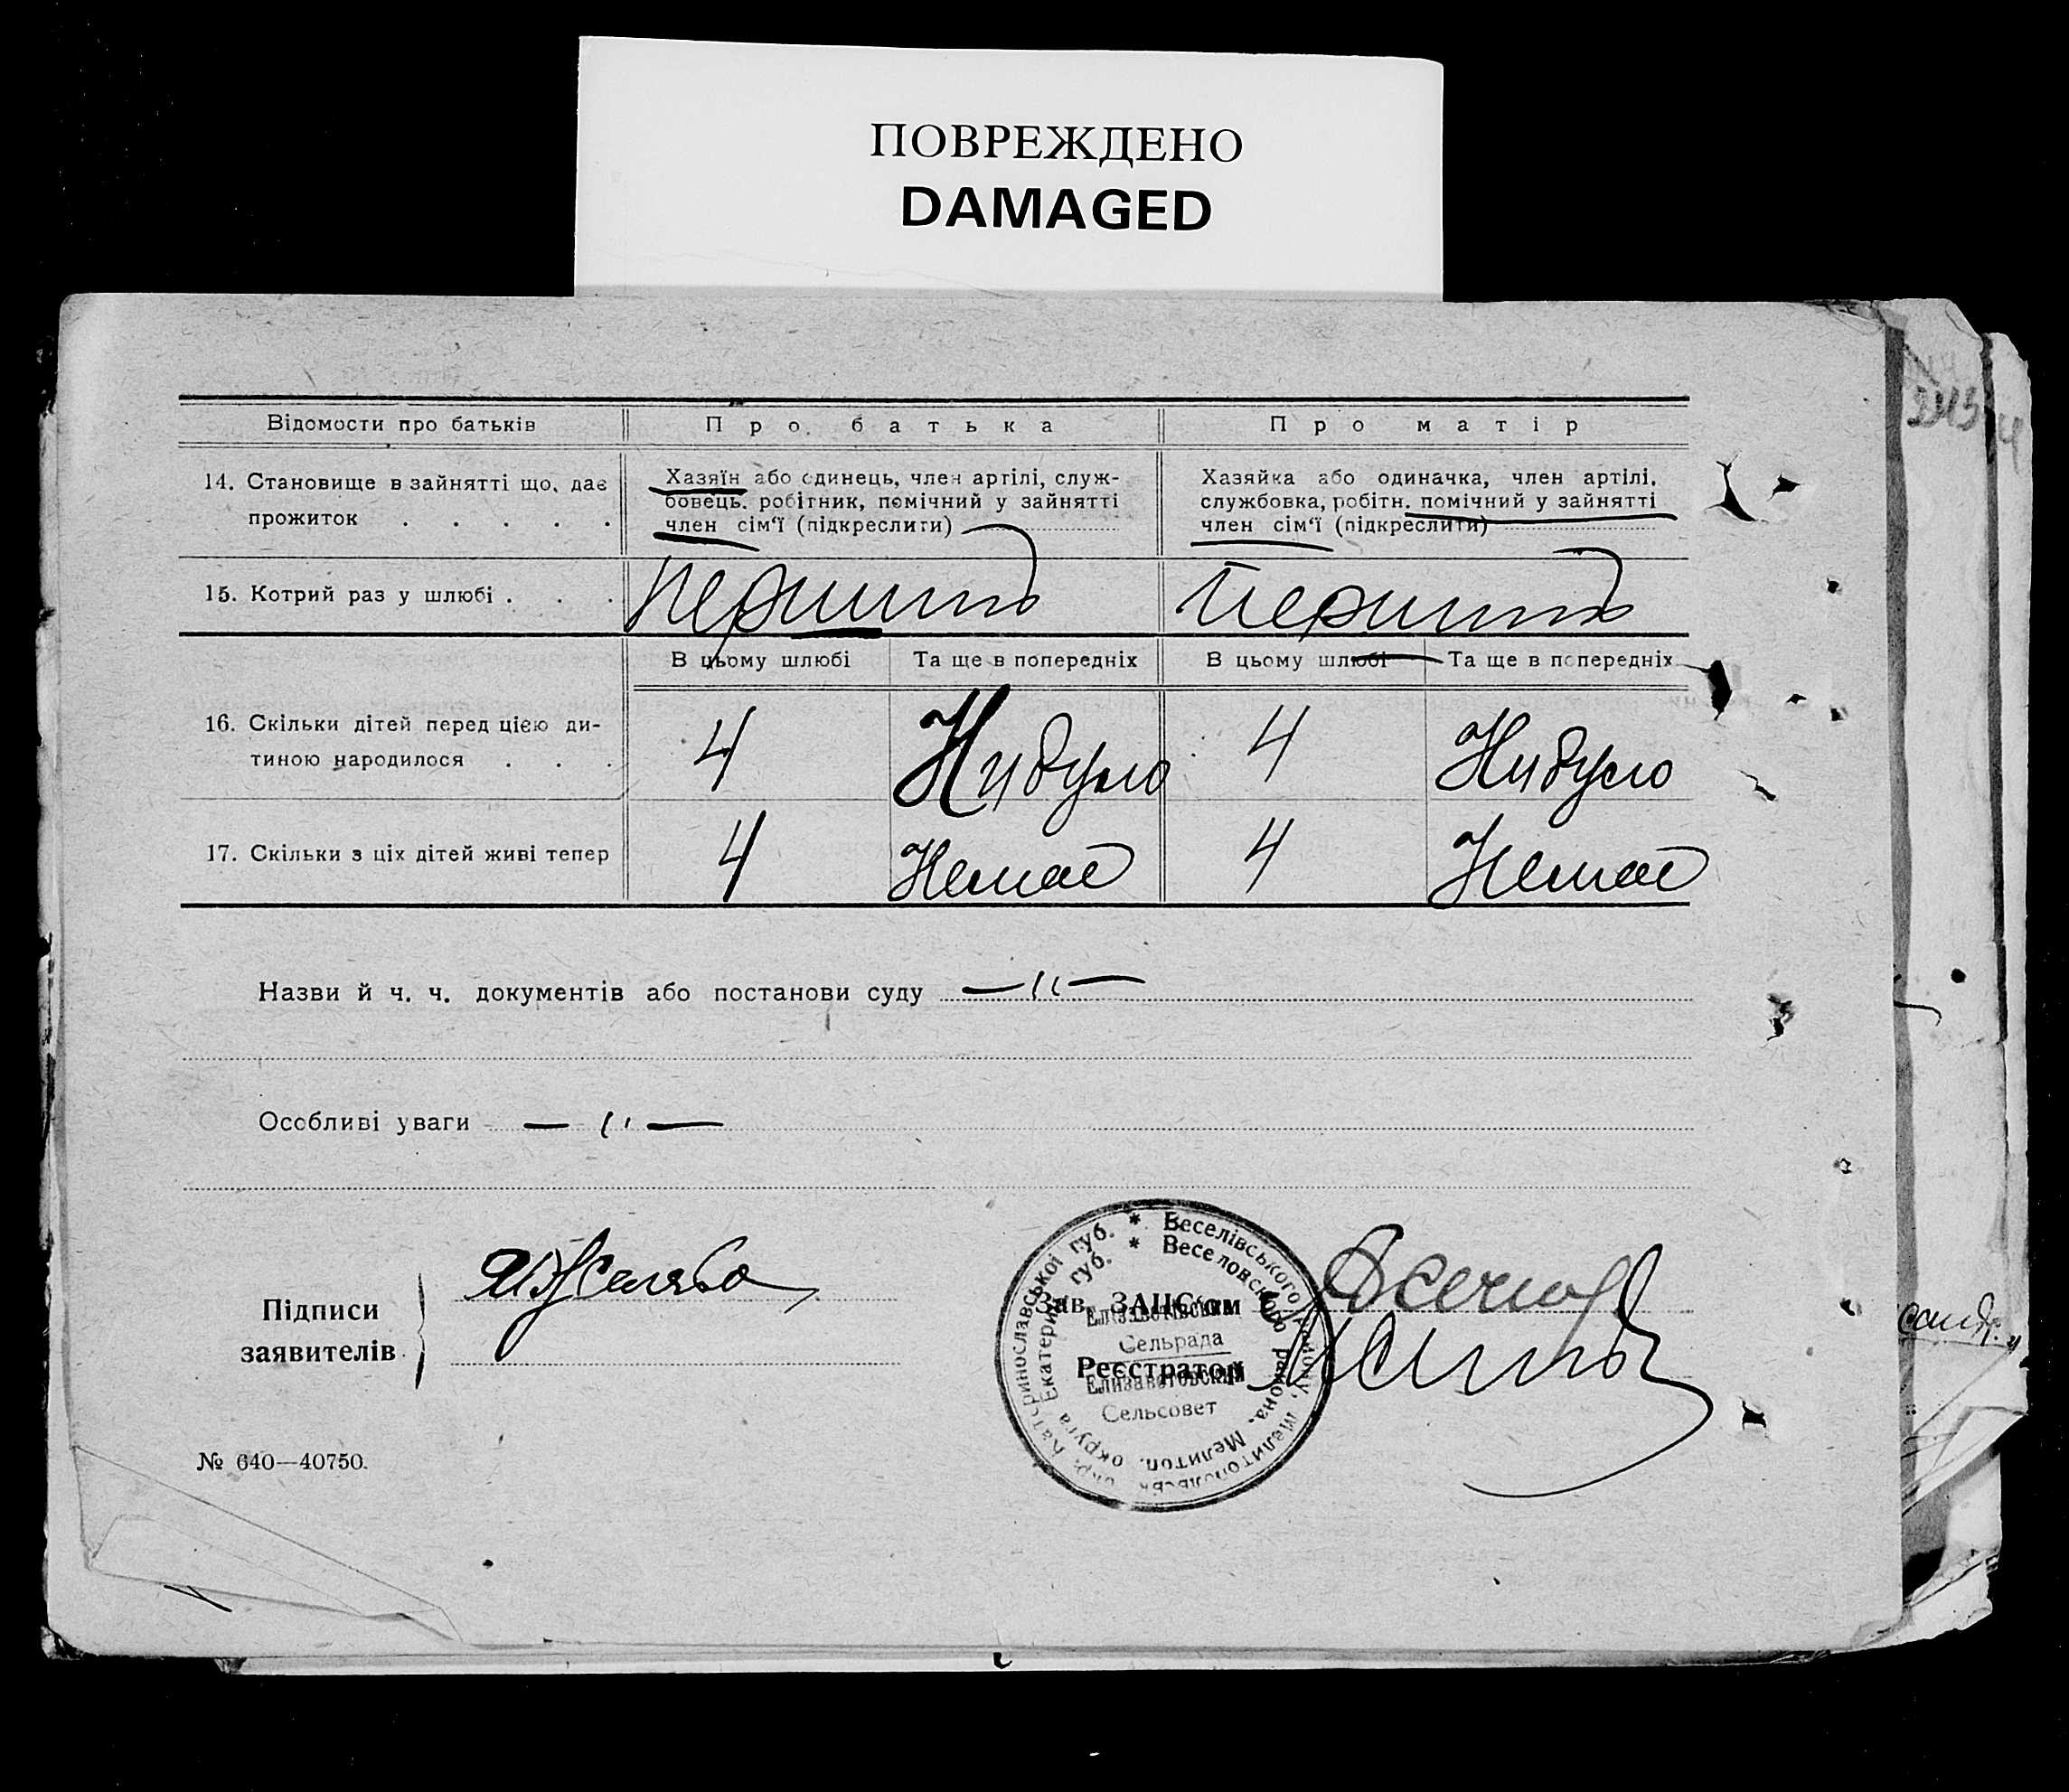 ПОВРЕЖДЕНО
DAMAGED
Відомости про батьків
Про батька
Про матір
14. Становище в зайнятті що, дає прожиток . . . . .
Хазяїн або єдинець, член артілі, служ-
бовець, робітник, помічний у зайнятті
член сім'ї (підкреслити)
Хазяйка або одиначка, член артілі,
службовка, робітн. помічний у зайнятті
член сім'ї (підкреслити)
15. Котрий раз у шлюбі . . .
Перший
Перший
В цьому шлюбі
Та ще в попередніх
В цьому шлюбі
Та ще в попередніх
16. Скільки дітей перед цією ди-
тиною народилося . . .
4
Нибуло
4
Нибуло
17. Скільки з ціх дітей живі тепер
4
Немає
4
Немає
Назви й ч. ч. документів або постанови суду —〃—
Особливі уваги —〃—
Підписи
заявителів
Зав. ЗАГС'ом
Реєстратор
* Веселівського району, Мелитопольськ. окр. Катеринославської губ.
* Веселовского района, Мелитоп. округа Екатерин. губ.
Сельрада
Елизаветовский
Сельсовет
№ 640—40750.